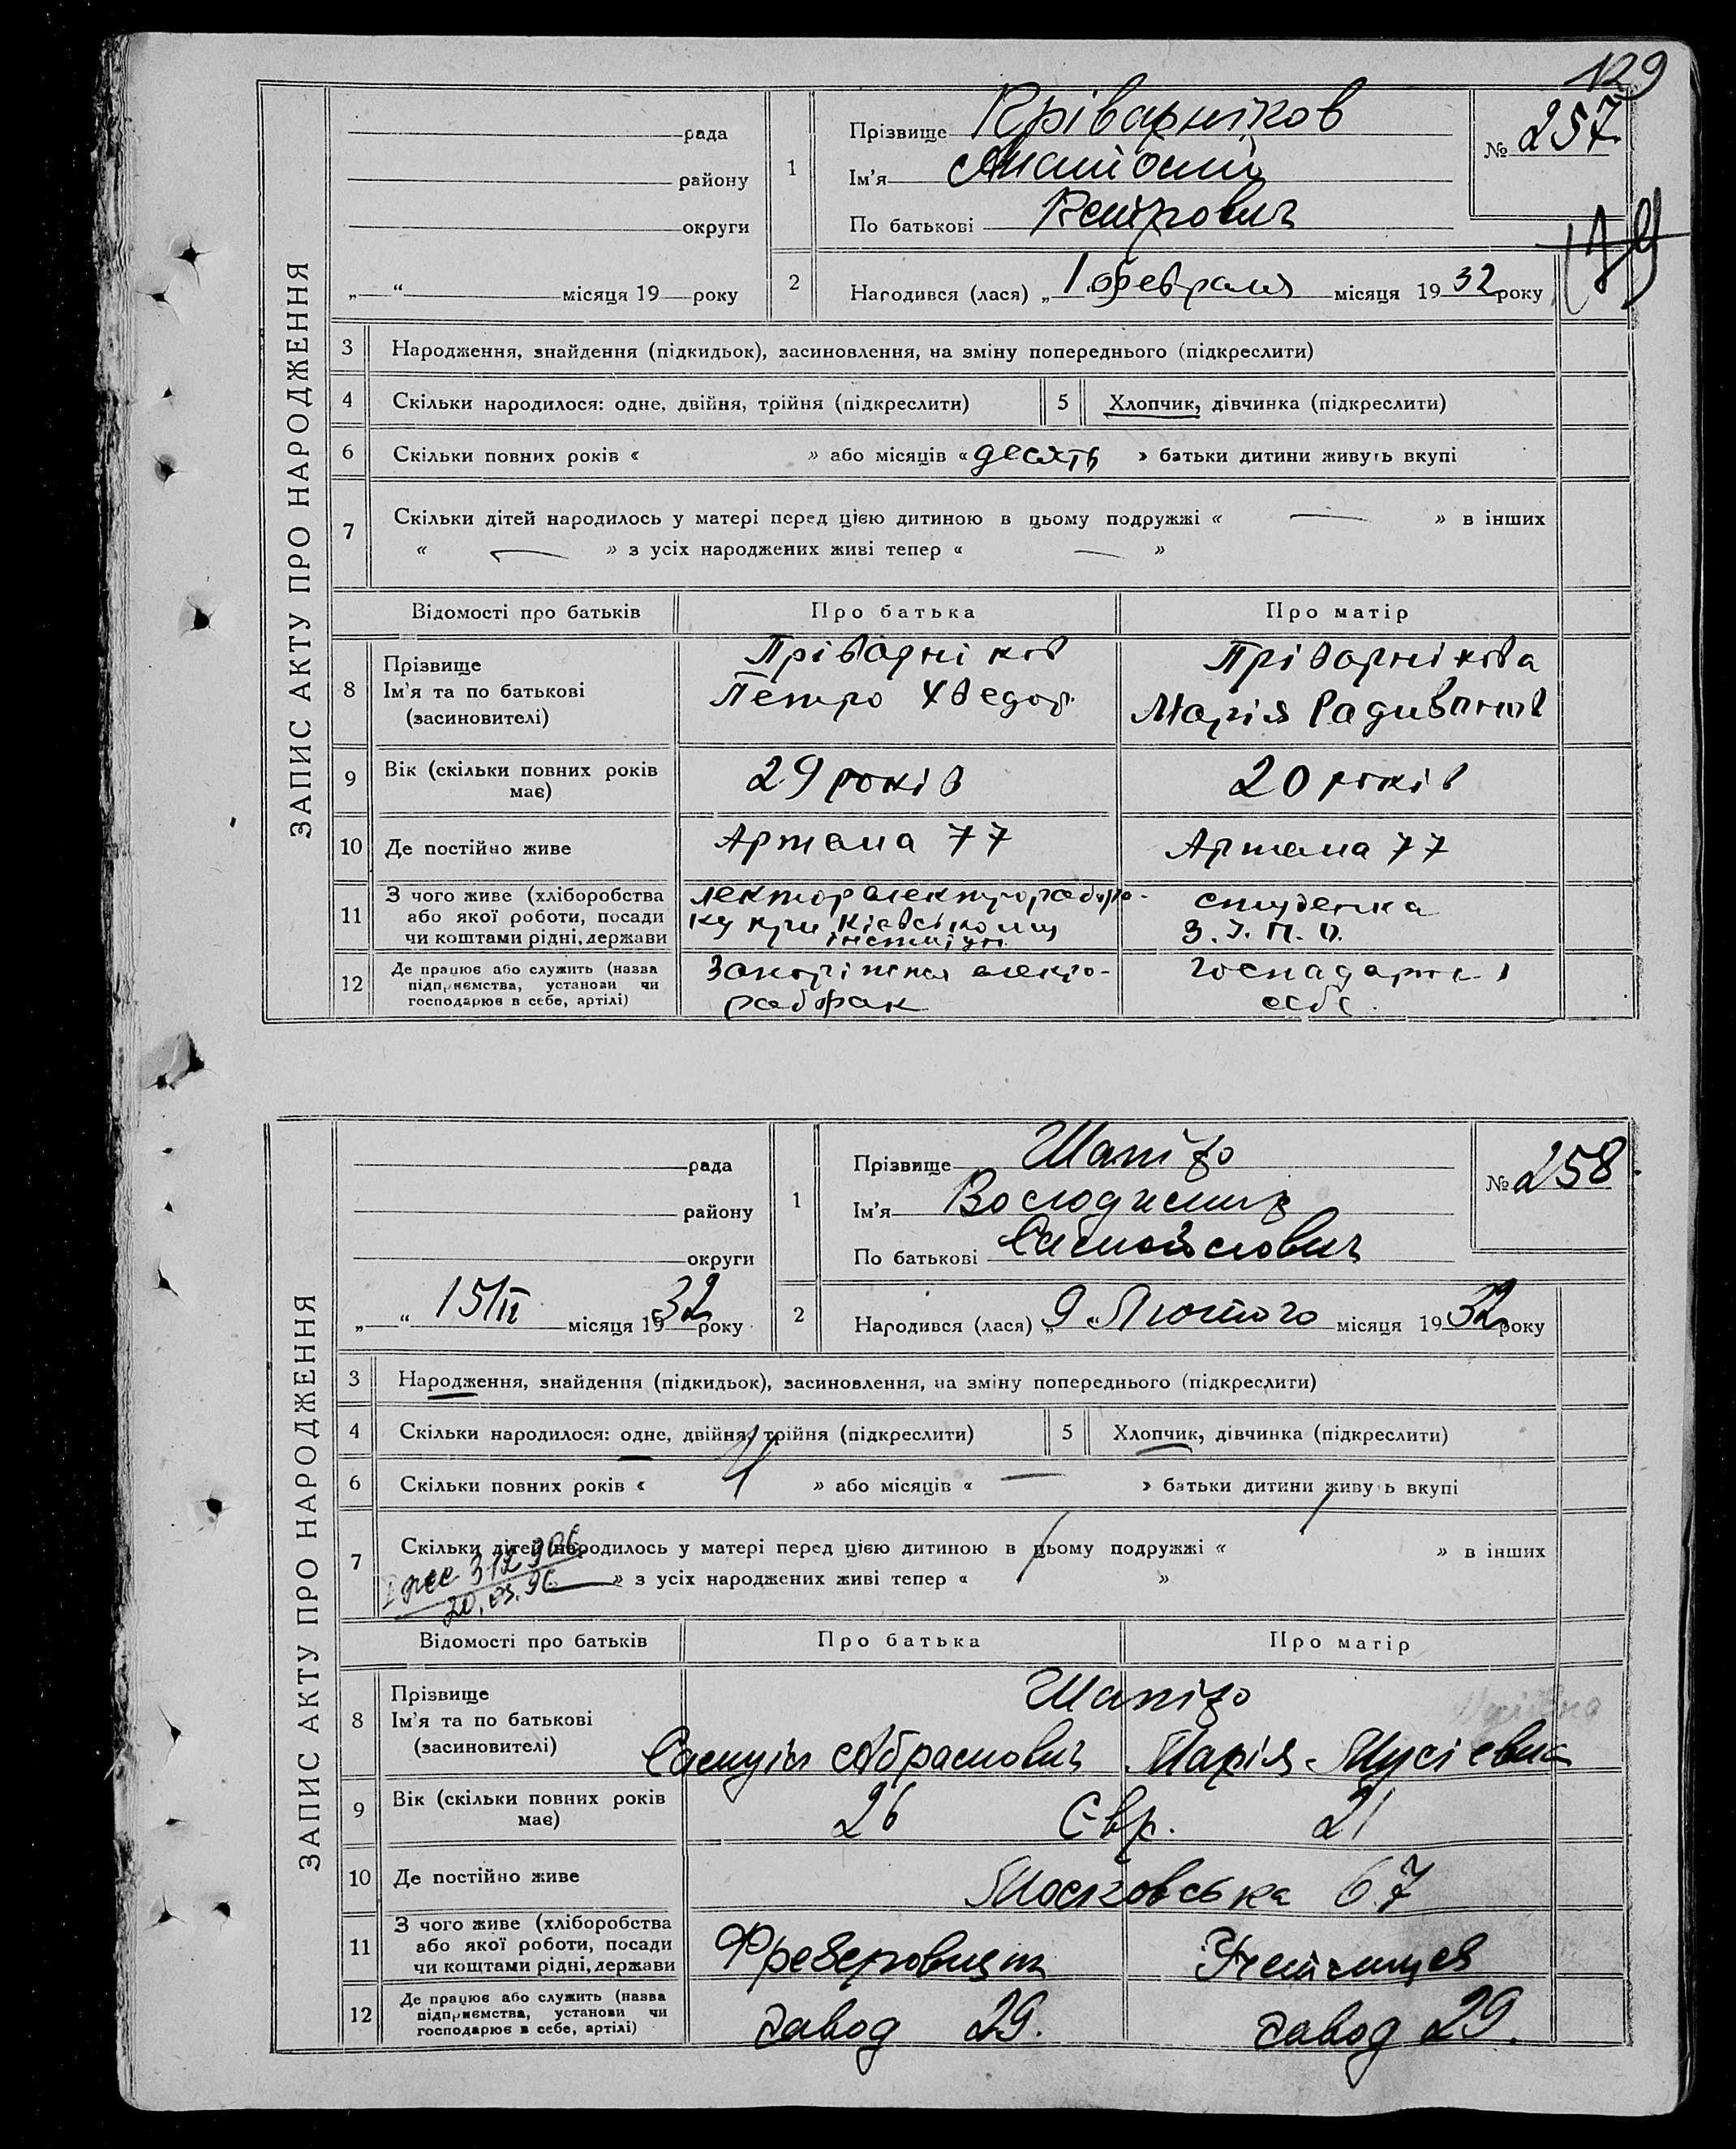 129
ЗАПИС АКТУ ПРО НАРОДЖЕННЯ
рада
району
округи
„ “ місяця 19 року
1
Прізвище Пріварніков
Ім’я Анатолій
По батькові Петрович
№ 257
2
Народився (лася) „1 февраля місяця 1932 року
3 Народження, знайдення (підкидьок), засиновлення, на зміну попереднього (підкреслити)
4 Скільки народилося: одне, двійня, трійня (підкреслити) 5 Хлопчик, дівчинка (підкреслити)
6 Скільки повних років « » або місяців «десять » батьки дитини живуть вкупі
7 Скільки дітей народилось у матері перед цією дитиною в цьому подружжі « — » в інших
« — » з усіх народжених живі тепер « — »
Відомості про батьків Про батька Про матір
8 Прізвище Ім’я та по батькові (засиновителі)
Пріварніков Пріварнікова
Петро Хведор. Марія Радивонов
9 Вік (скільки повних років має) 29 років 20 років
10 Де постійно живе Артема 77 Артема 77
11 З чого живе (хліборобства або якої роботи, посади чи коштами рідні, держави
лектор електрорабфа-
ку при Київському
інституті
студентка
З. І. П. О.
12 Де працює або служить (назва підприємства, установи чи господарює в себе, артілі)
електро-
рабфак
себе.
ЗАПИС АКТУ ПРО НАРОДЖЕННЯ
рада
району
округи
„ “ 15/II місяця 1932 року
1
Прізвище Шапіро
Ім’я Володимир
По батькові Самойлович
№ 258
2
Народився (лася) „9“ Лютого місяця 1932 року
3 Народження, знайдення (підкидьок), засиновлення, на зміну попереднього (підкреслити)
4 Скільки народилося: одне, двійня, трійня (підкреслити) 5 Хлопчик, дівчинка (підкреслити)
6 Скільки повних років « 4 » або місяців « — » батьки дитини живуть вкупі
7 Скільки дітей народилось у матері перед цією дитиною в цьому подружжі « / » в інших
« — » з усіх народжених живі тепер « / »
20.03.96
Відомості про батьків Про батька Про матір
8 Прізвище Ім’я та по батькові (засиновителі)
Шапіро
Самуіл Абрамович Марія Мусіевна
9 Вік (скільки повних років має) 26 Євр. 21
10 Де постійно живе Московська 67
11 З чого живе (хліборобства або якої роботи, посади чи коштами рідні, держави
Фрезеровщик
12 Де працює або служить (назва підприємства, установи чи господарює в себе, артілі)
завод 29. завод 29.